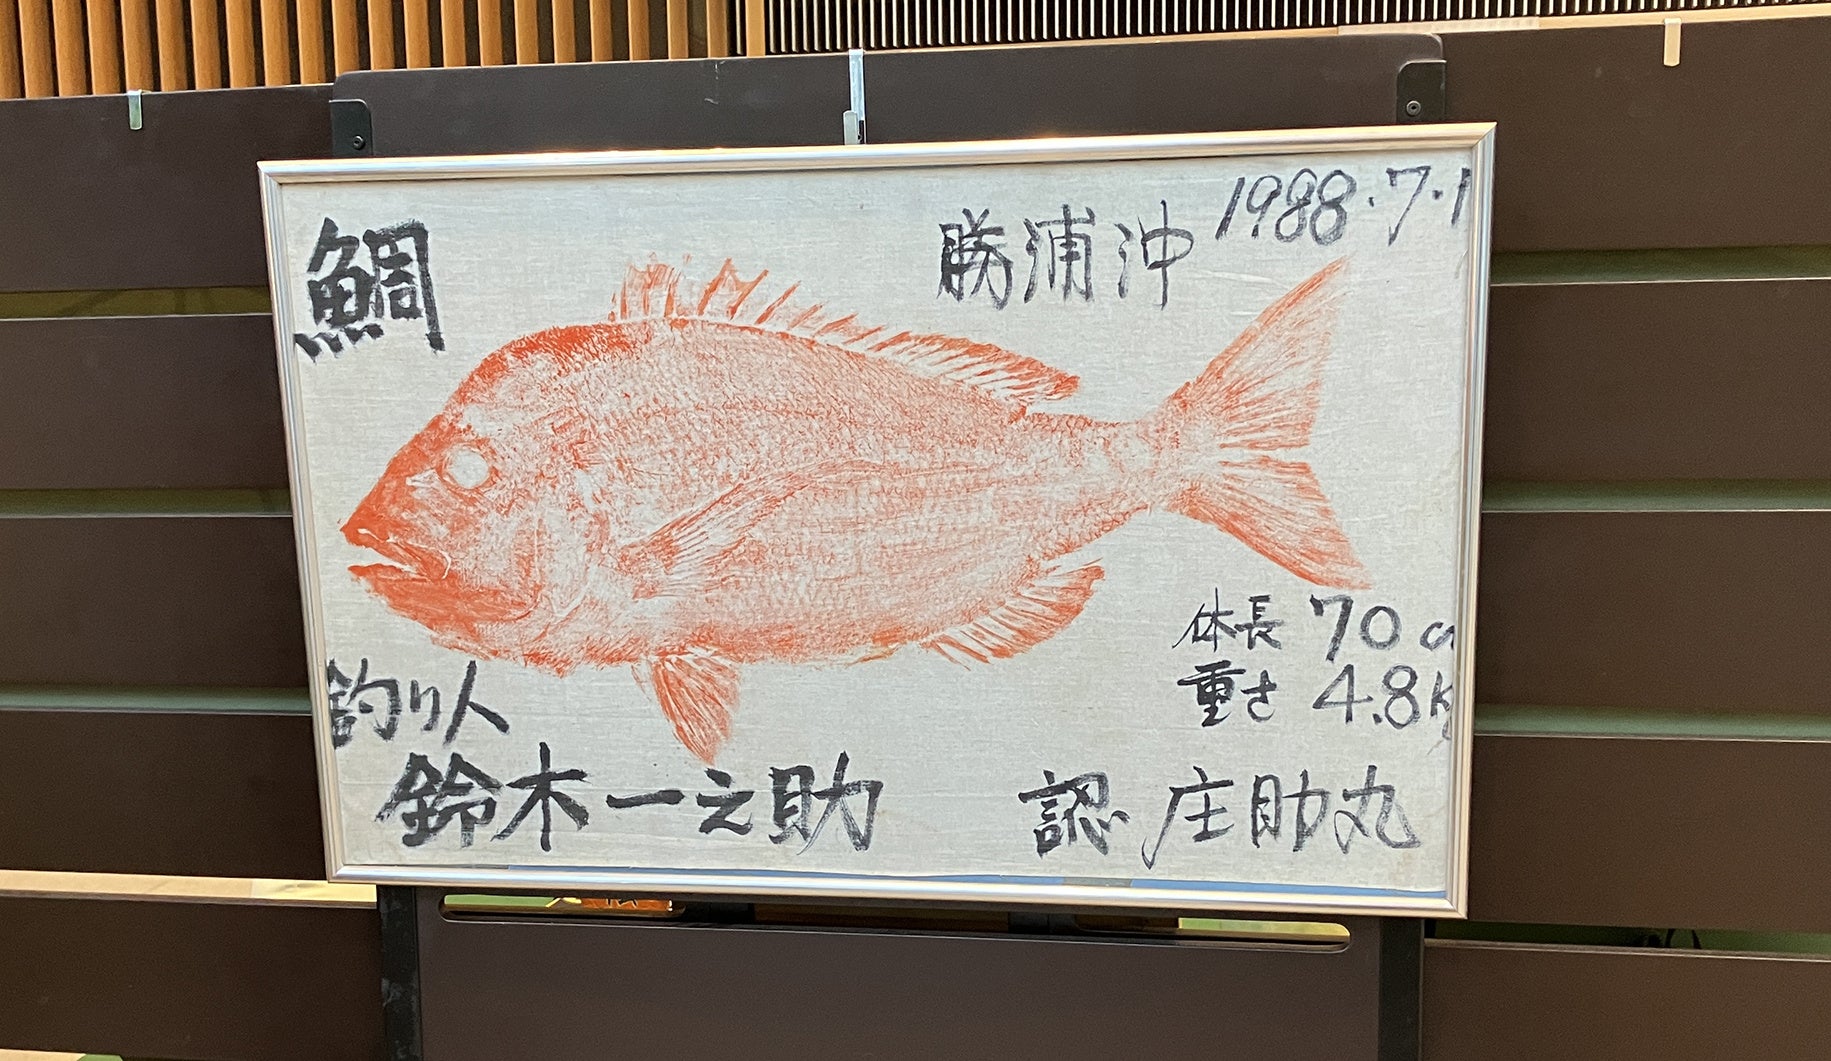 鯛
勝浦沖
1988.7.1
体長 70 c
重さ 4.8k
釣り人
鈴木一之助
認 庄助丸